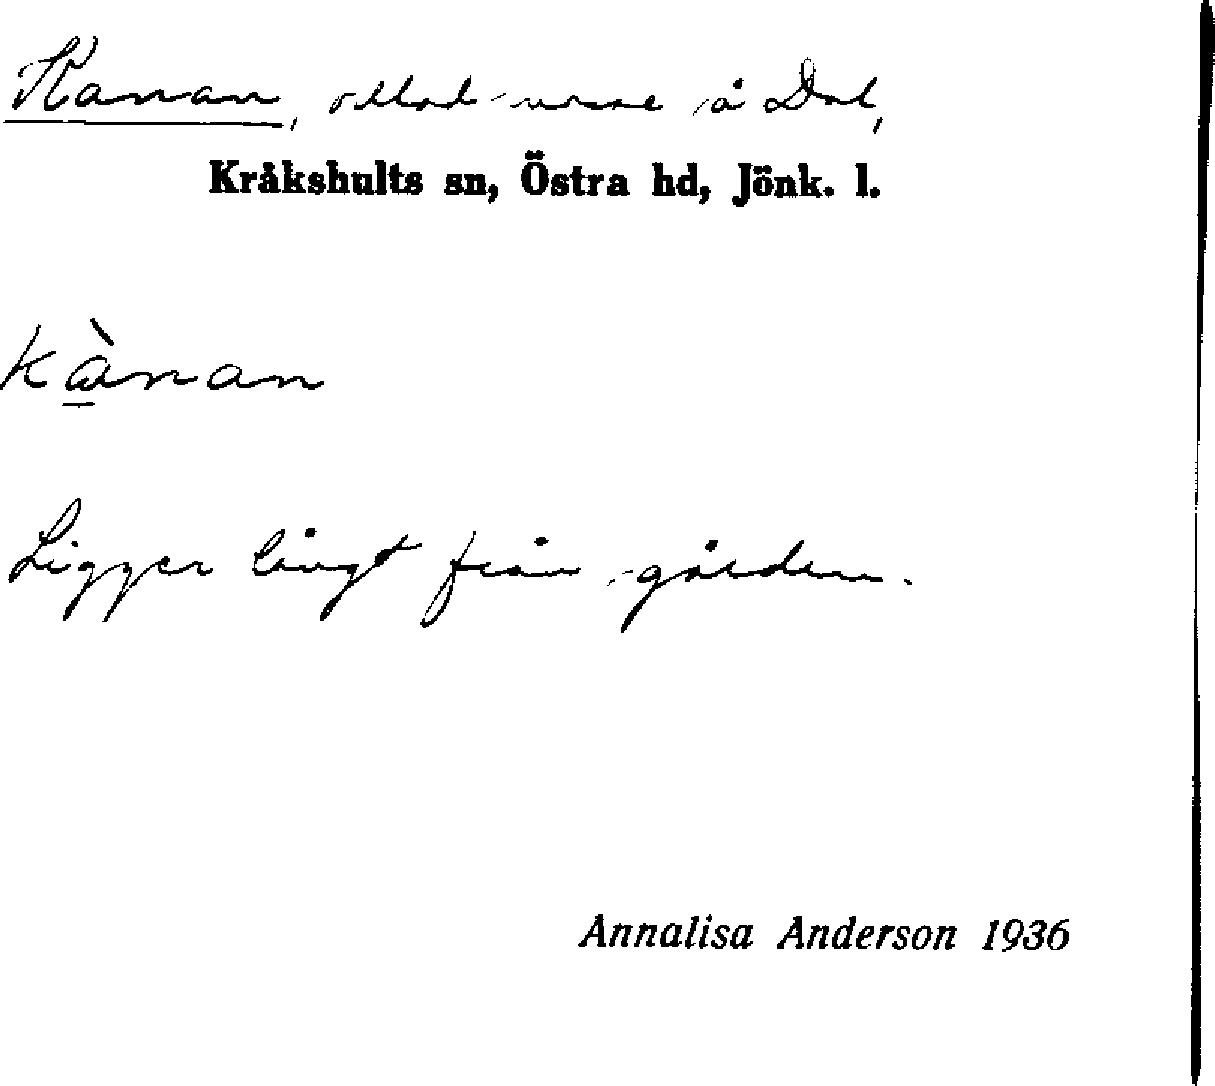 Kanan, odlad mosse å Dal,
Kråkshults sn, Östra hd, Jönk. l.
kànan
Ligger långt från gården.
Annalisa Anderson 1936